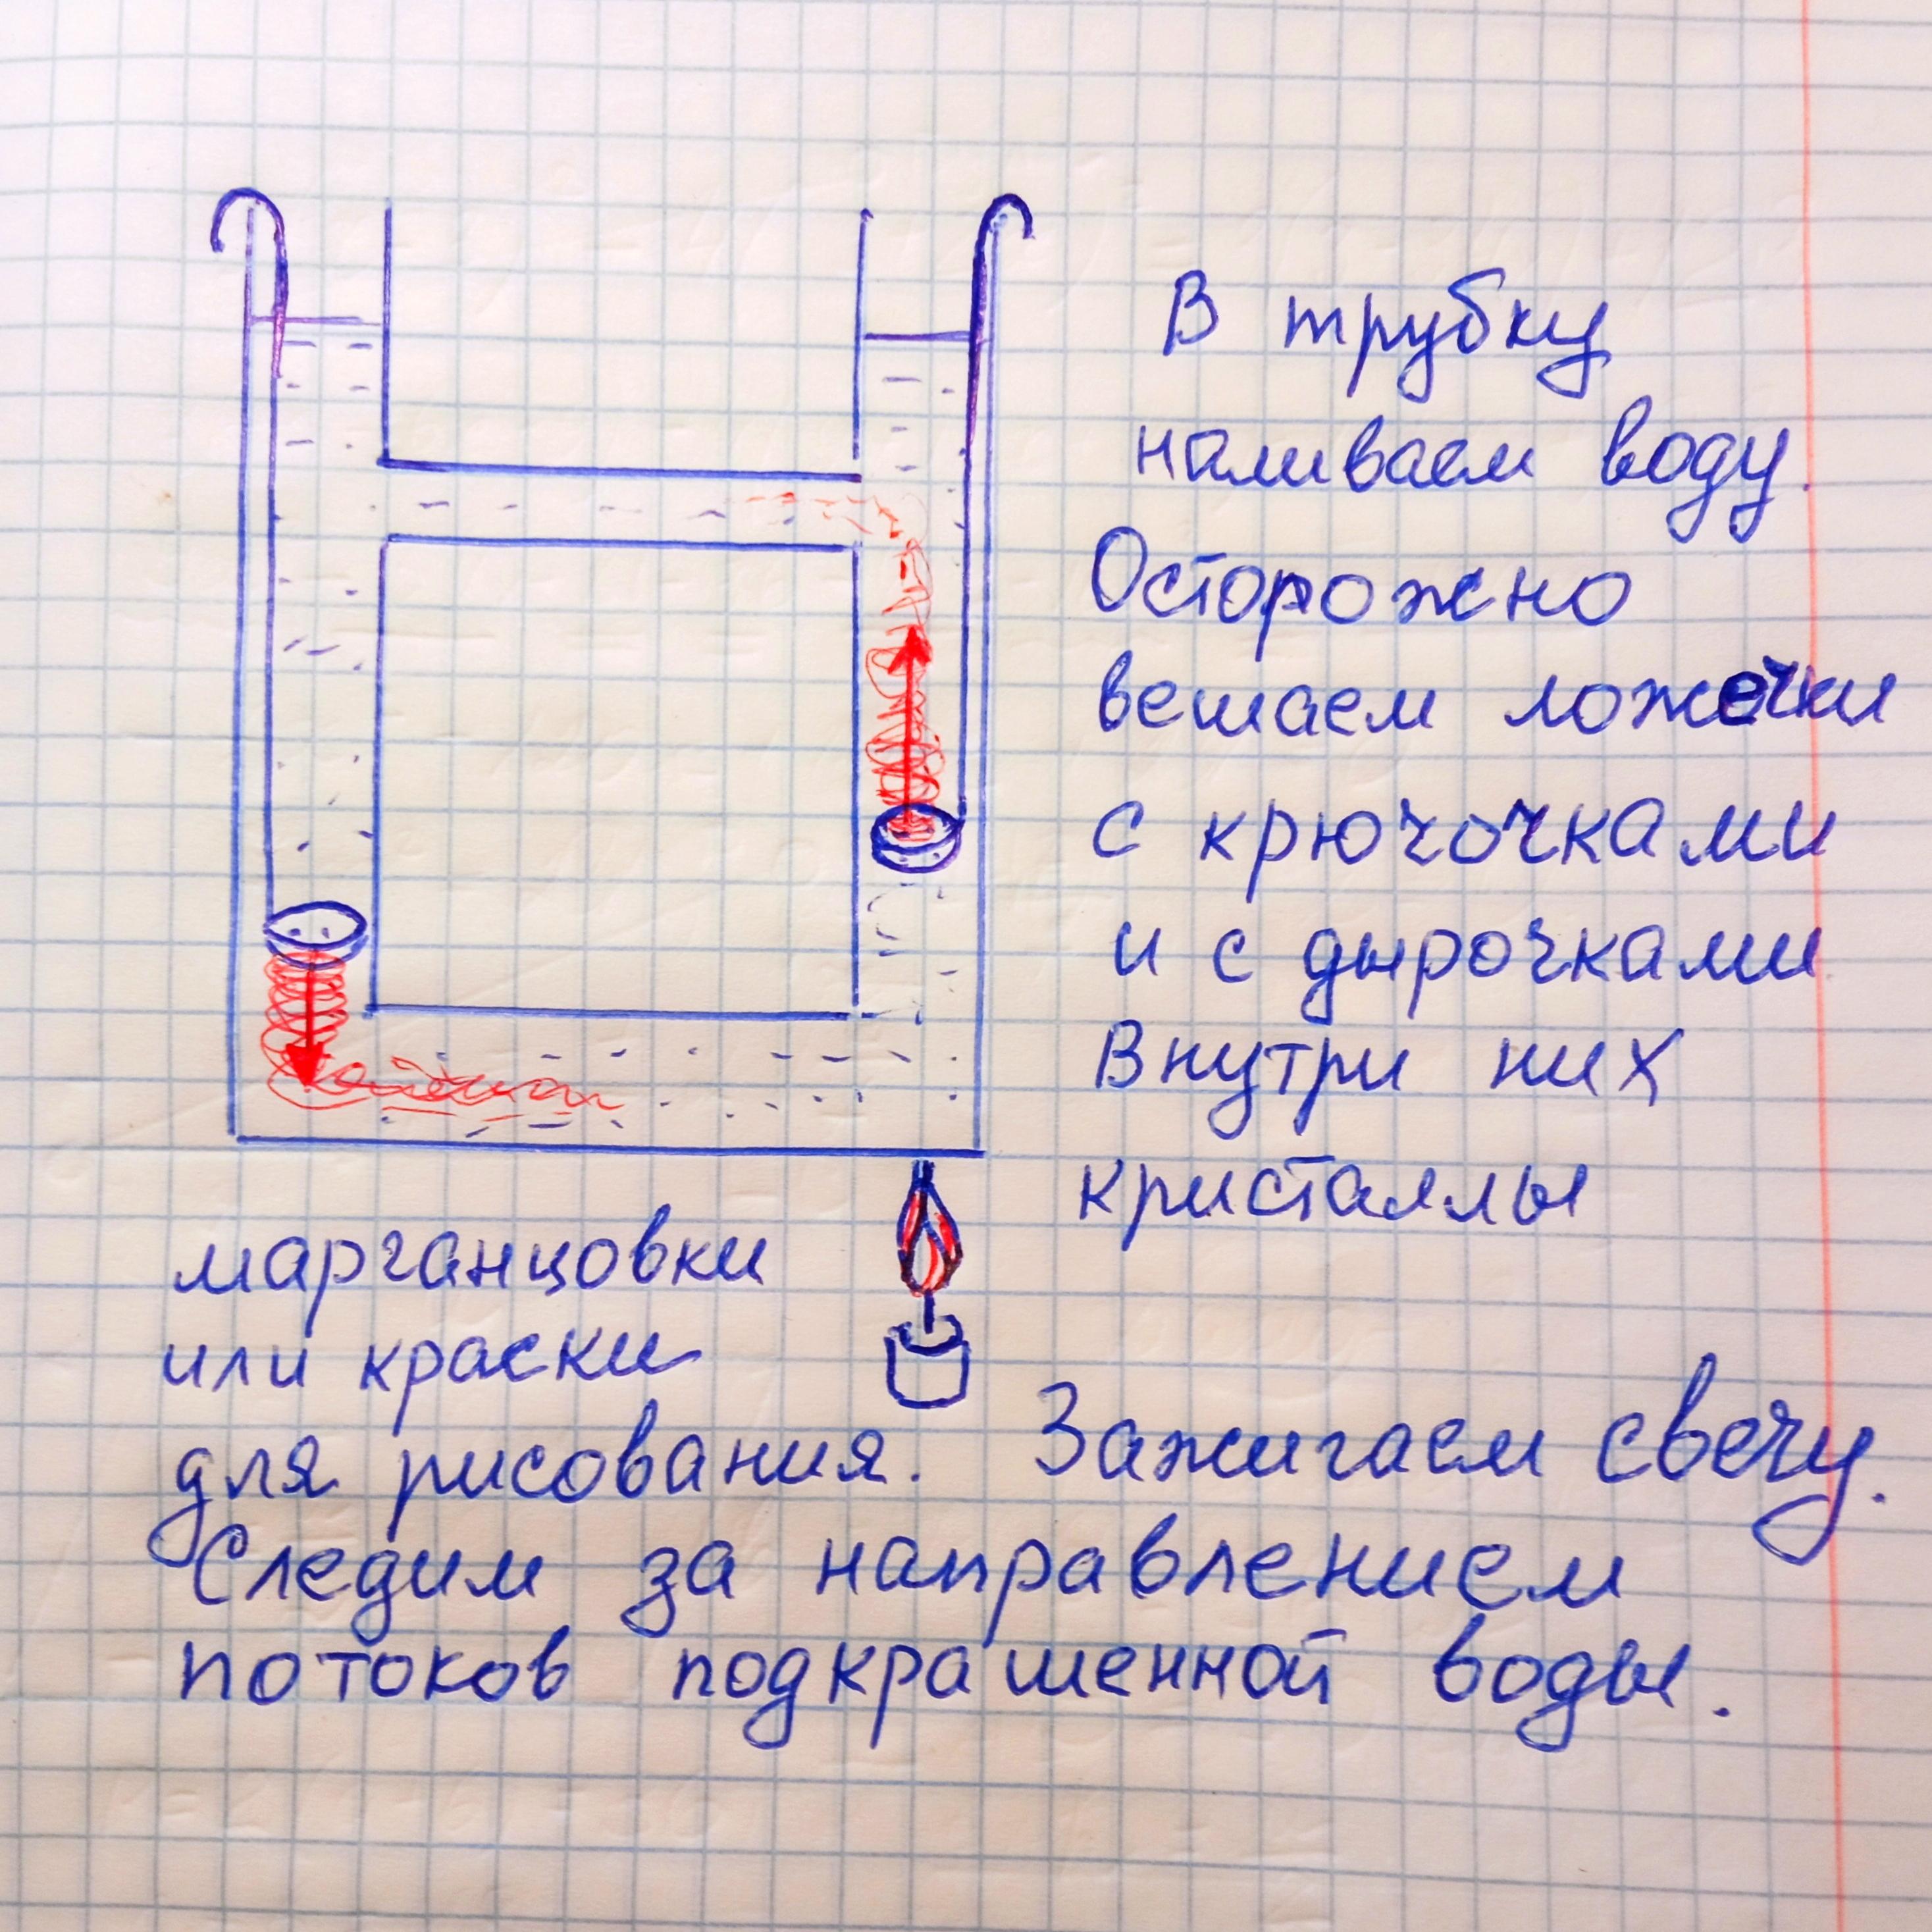 В трубку
наливаем воду.
Осторожно
вешаем ложечки
с крючочками
и с дырочками
Внутри них
кристаллы
марганцовки
или краски
для рисования. Зажигаем свечу.
Следим за направлением
потоков подкрашенной воды.